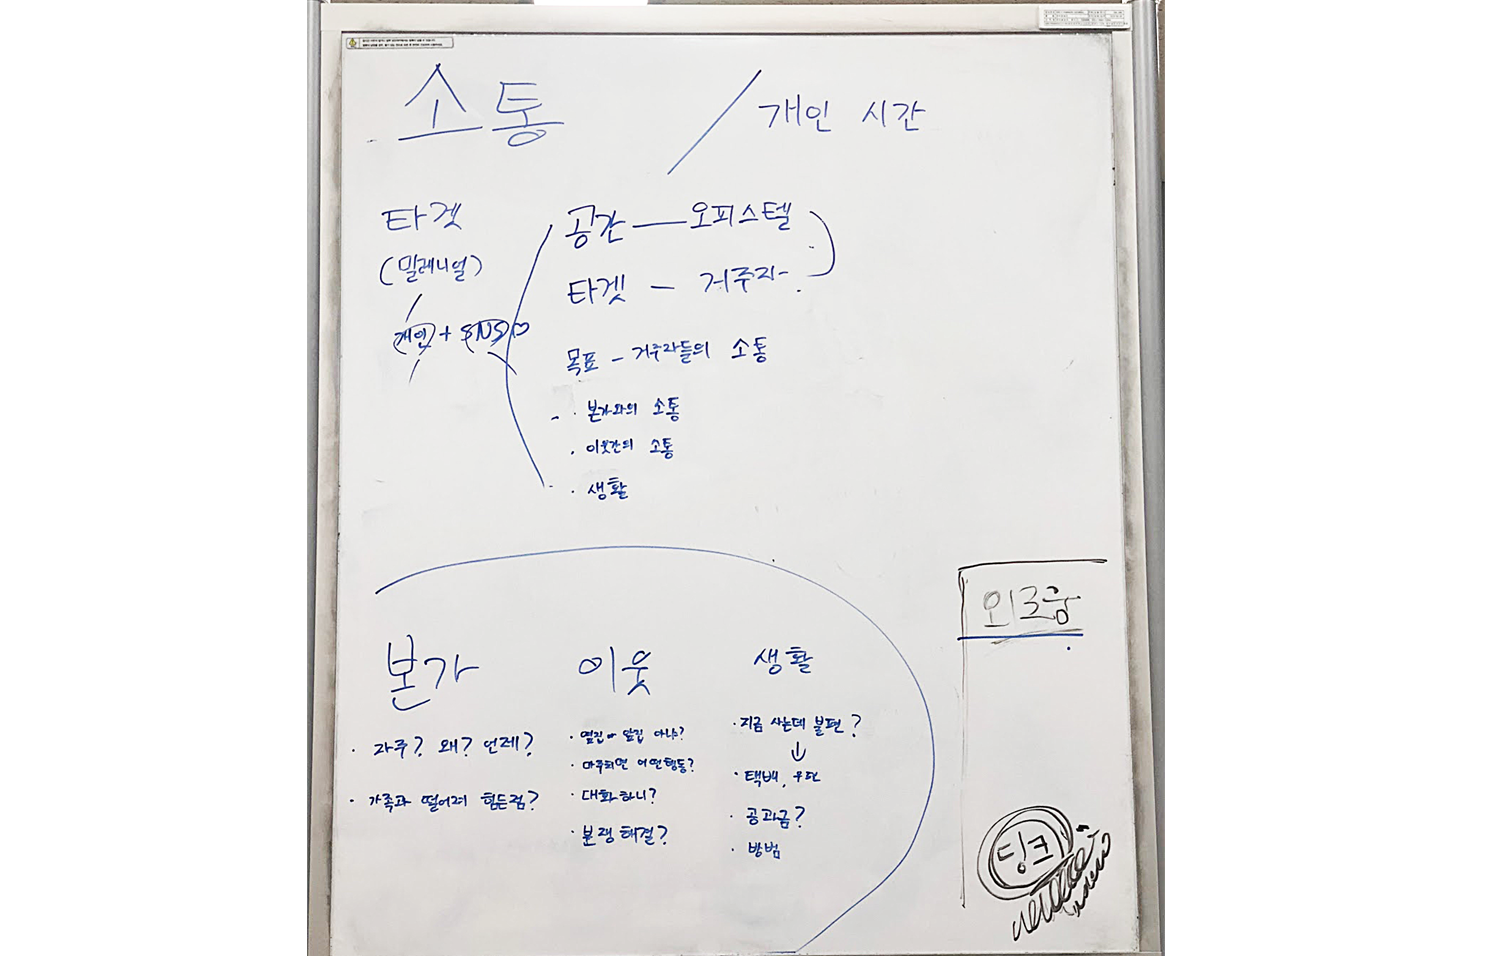 소통 / 개인 시간
타겟
(밀레니얼)
개인 + SNS
공간 — 오피스텔
타겟 — 거주자
목표 - 거주자들의 소통
· 본가와의 소통
· 이웃간의 소통
· 생활
본가
· 자주? 왜? 언제?
· 가족과 떨어져 힘든점?
이웃
· 옆집 or 앞집 아니?
· 마주치면 어떤행동?
· 대화하니?
· 분쟁 해결?
생활
· 지금 사는데 불편?
↓
· 택배, 우편
· 공과금?
· 방범
외크융
딩크